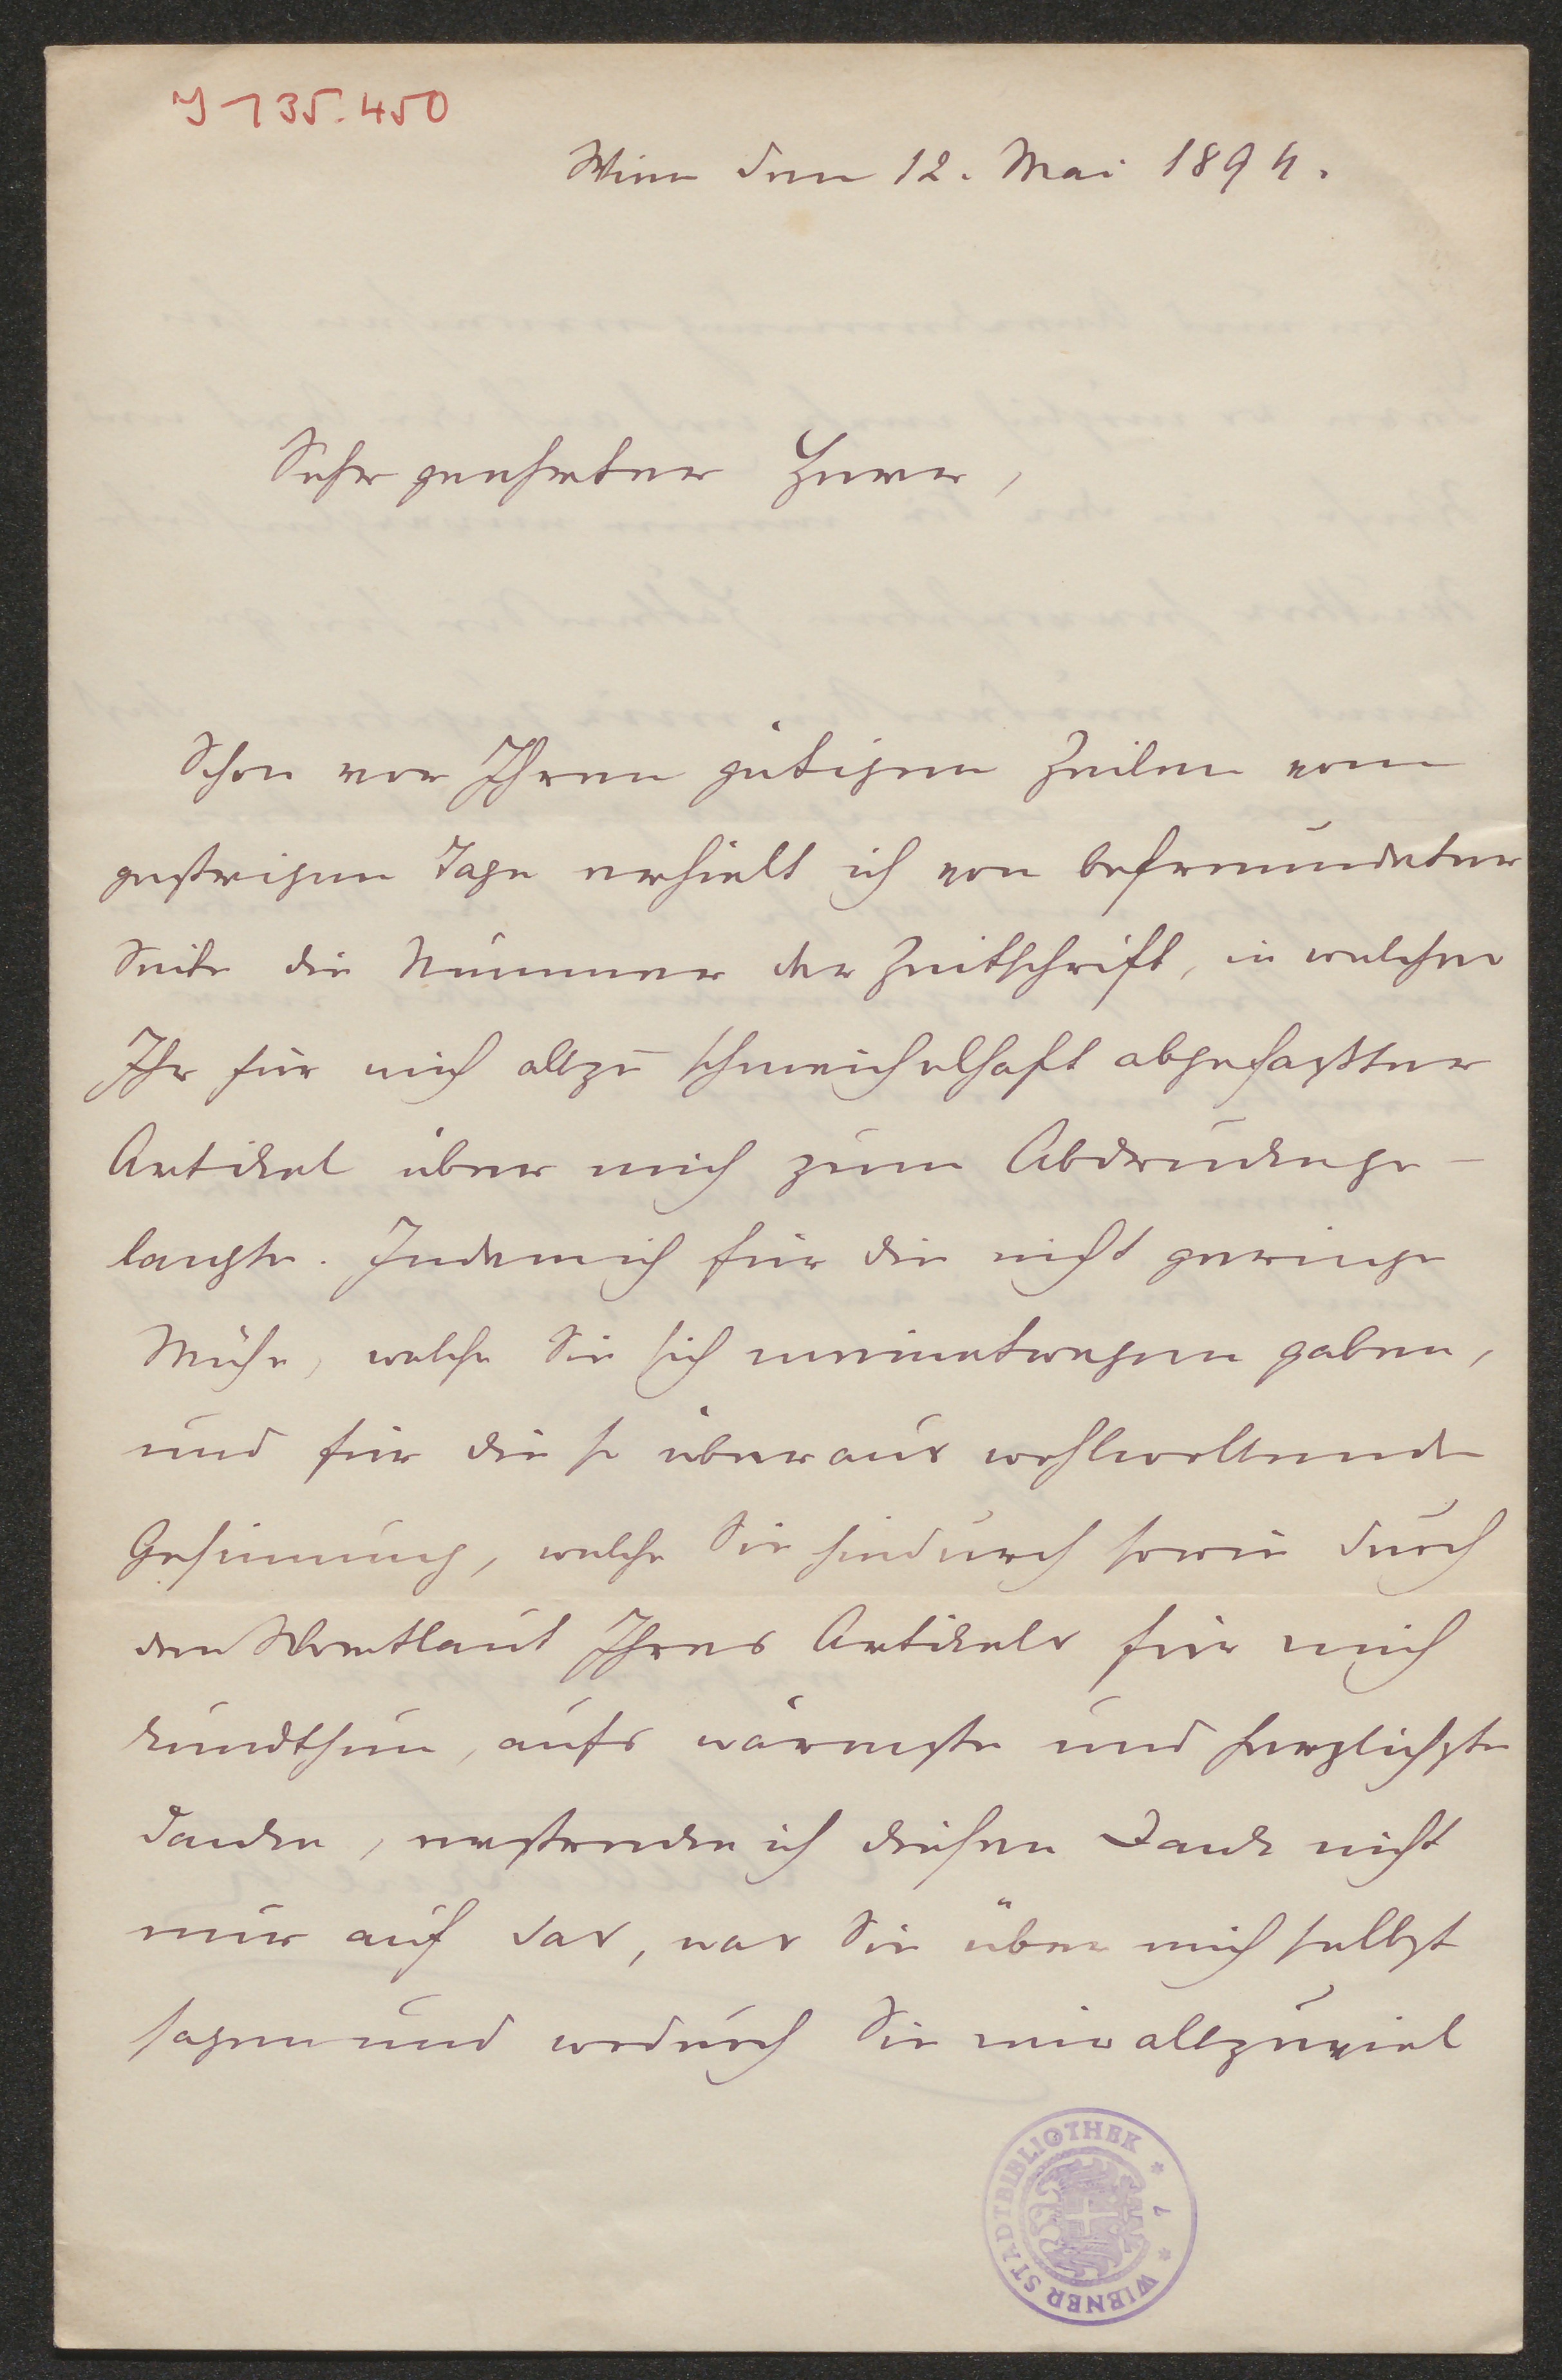 J 135.450
Wien den 12. Mai 1894.
Sehr geehrter Herr,
Schon vor Ihren gütigen Zeilen vom
gestrigen Tage erhielt ich von befreundeter
Seite die Nummer der Zeitschrift, in welcher
Ihr für mich allzu schmeichelhaft abgefaßter
Artikel über mich zum Abdrucke ge-
langte. Indem ich für die nicht geringe
Mühe, welche Sie sich meinetwegen gaben,
und für die so überaus wohlwollende
Gesinnung, welche Sie hiedurch sowie durch
den Wortlaut Ihres Artikels für mich
kundthun, aufs wärmste und herzlichste
danke, erstrecke ich diesen Dank nicht
nur auf das, was Sie über mich selbst
sagen und wodurch Sie mir allzuviel
WIENER STADTBIBLIOTHEK * 1 *